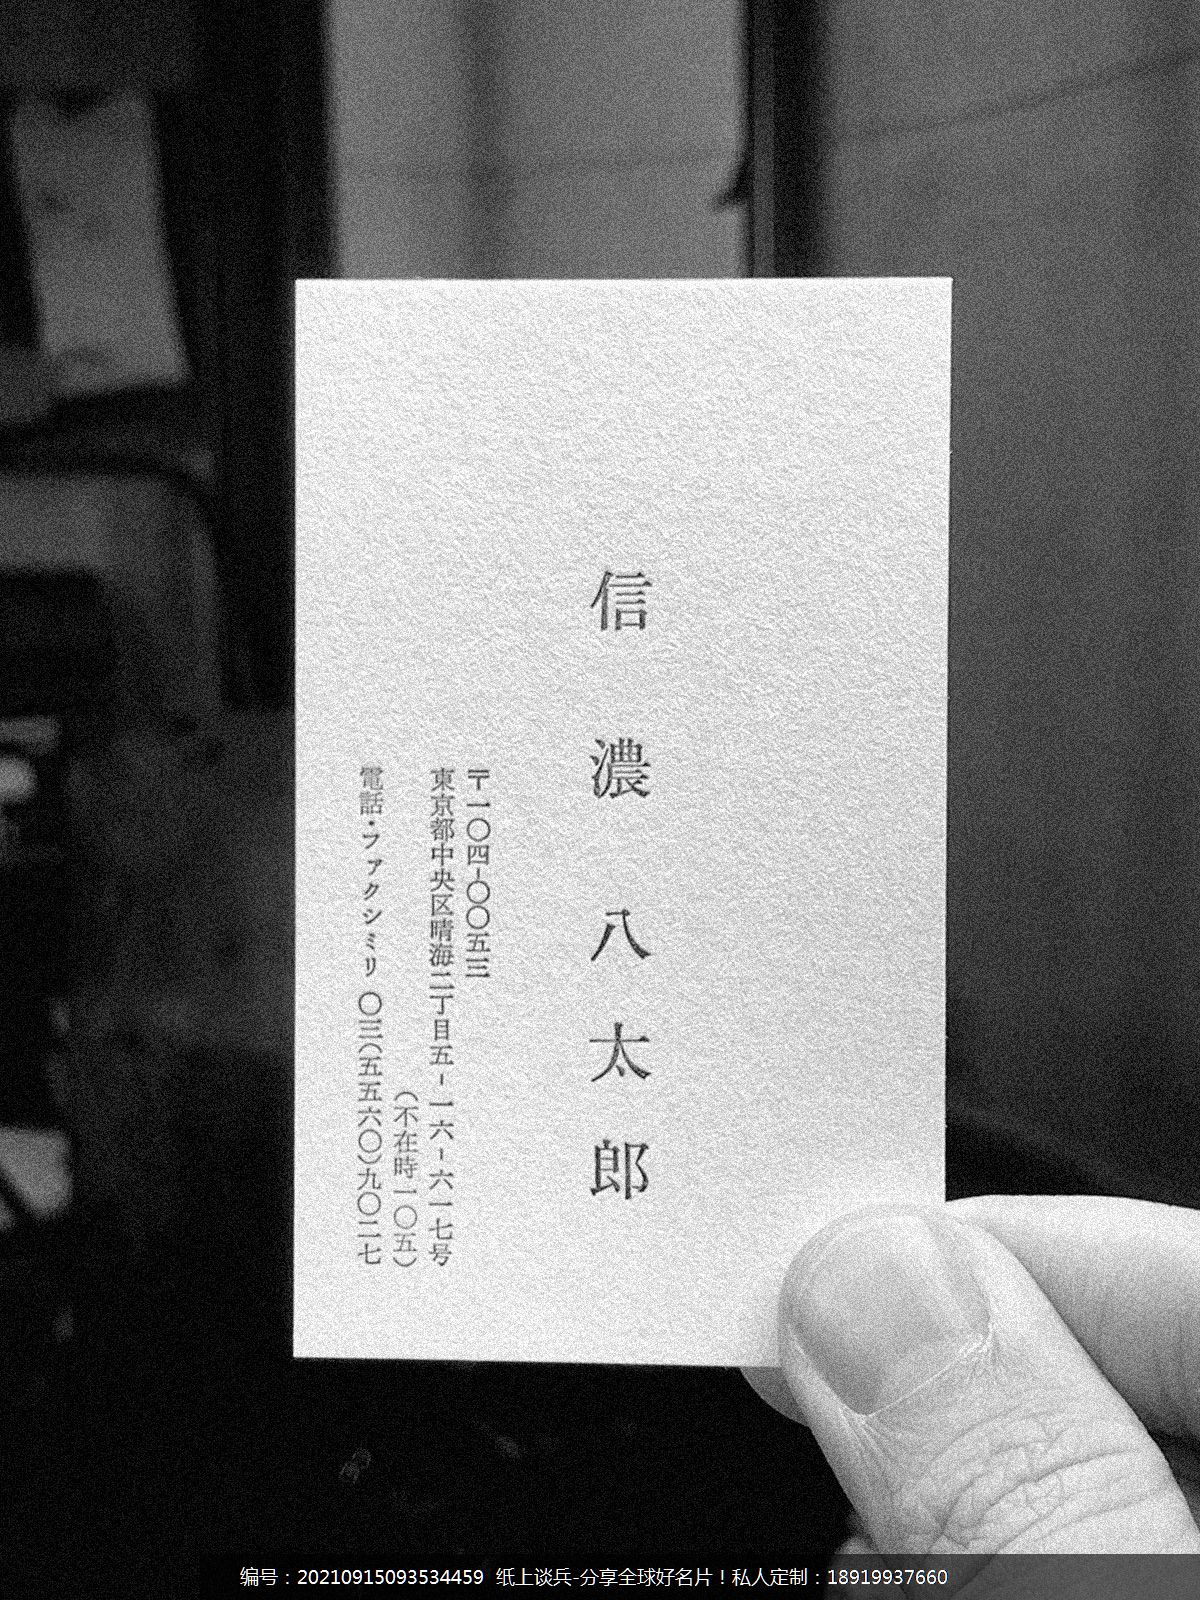 信濃八太郎
〒一〇四-〇〇五三
東京都中央区晴海二丁目五-一六-六一七号
(不在時一〇五)
電話・ファクシミリ 〇三(五五六〇)九〇二七
编号：20210915093534459 纸上谈兵-分享全球好名片！私人定制：18919937660